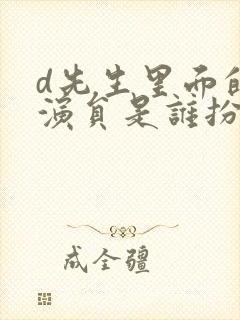 d先生里而的
演員是誰扮
成全疆